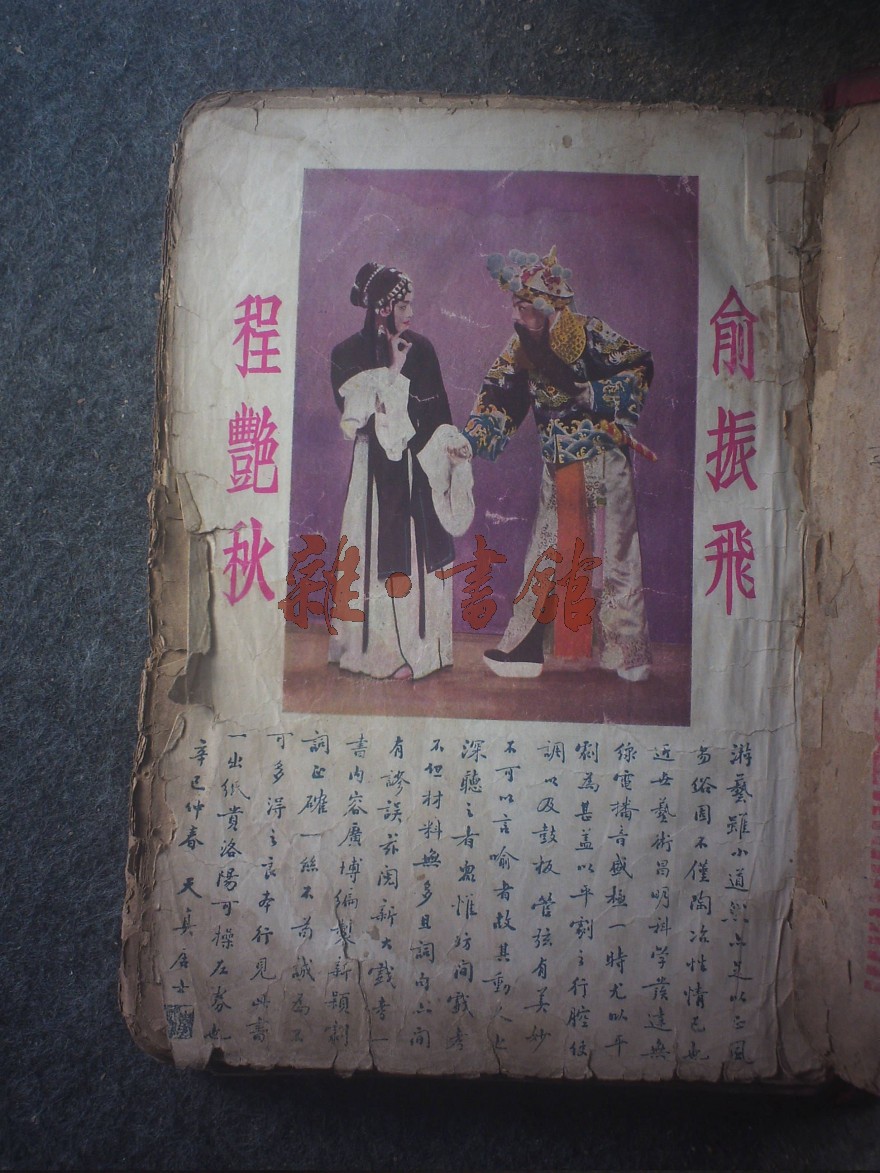 俞振飛
程艷秋
雜·書館
游藝雖小道然亦足以正風
易俗固不僅陶冶性情已也
近世藝術昌明科学發達無
線電播音盛極一時尤以平
劇為甚蓋以平劇之行腔使
調以及鼓板管弦有美妙
不可以言喻者故其動人之
深聽之者衆惟坊間戲考
不但材料無多且詞句亦間
有謬誤茲閱新大戲考一
書內容廣博編製新穎劇
詞正確一絲不苟誠為不
可多得之良本行見此書
一出紙貴洛陽可操左券也
辛巳仲春 天真居士